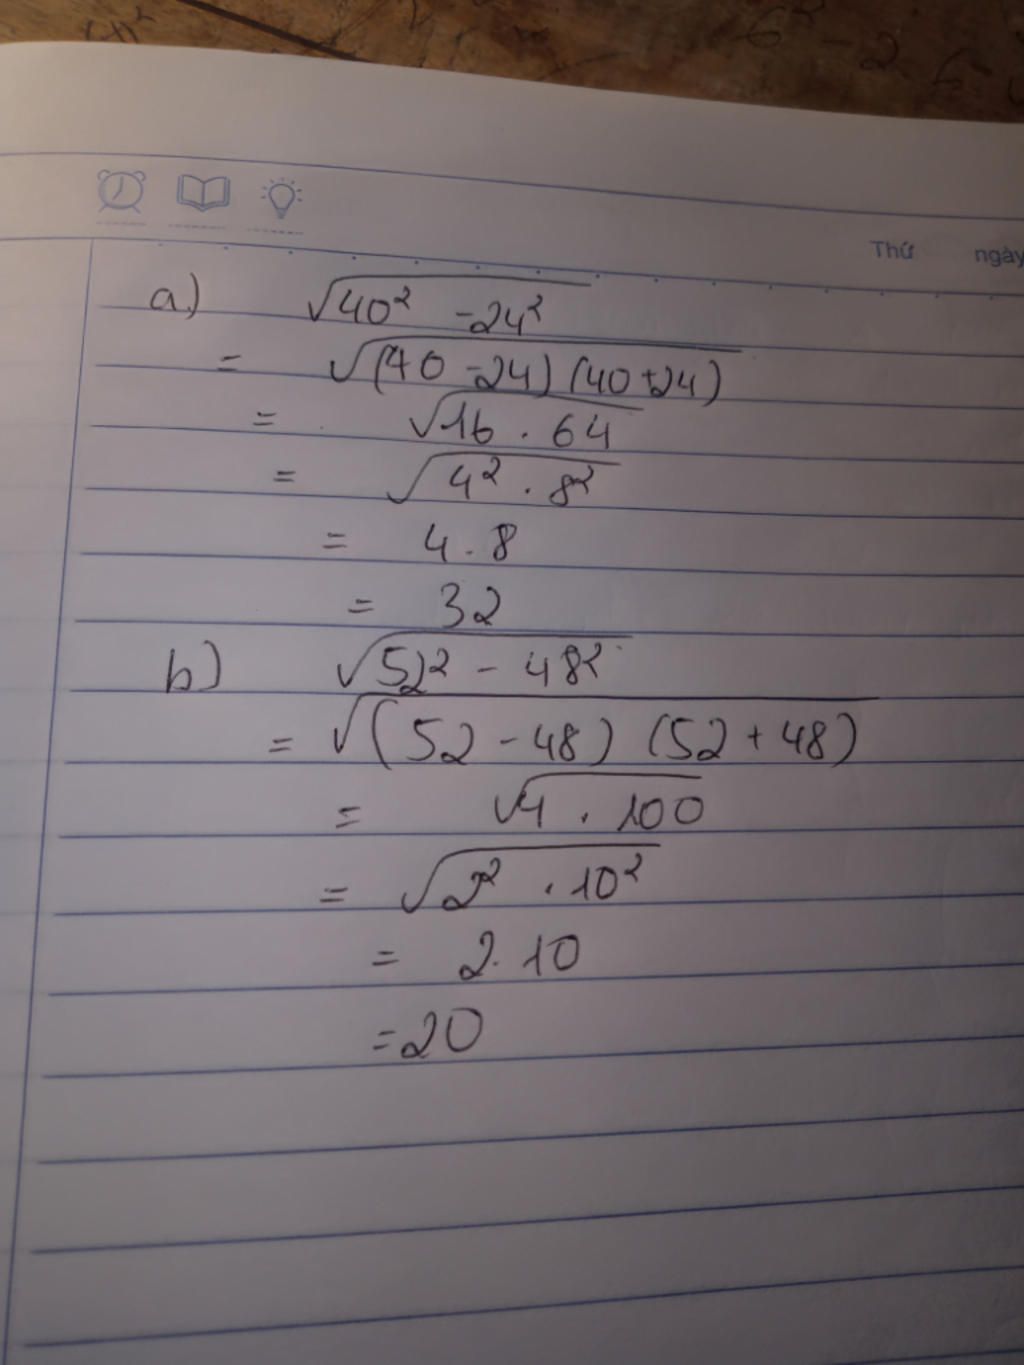 Thứ ngày
a) √40² - 24²
= √(40 - 24) (40 + 24)
= √16 . 64
= √4² . 8²
= 4 . 8
= 32
b) √52² - 48²
= √(52 - 48) (52 + 48)
= √4 . 100
= √2² . 10²
= 2 . 10
= 20